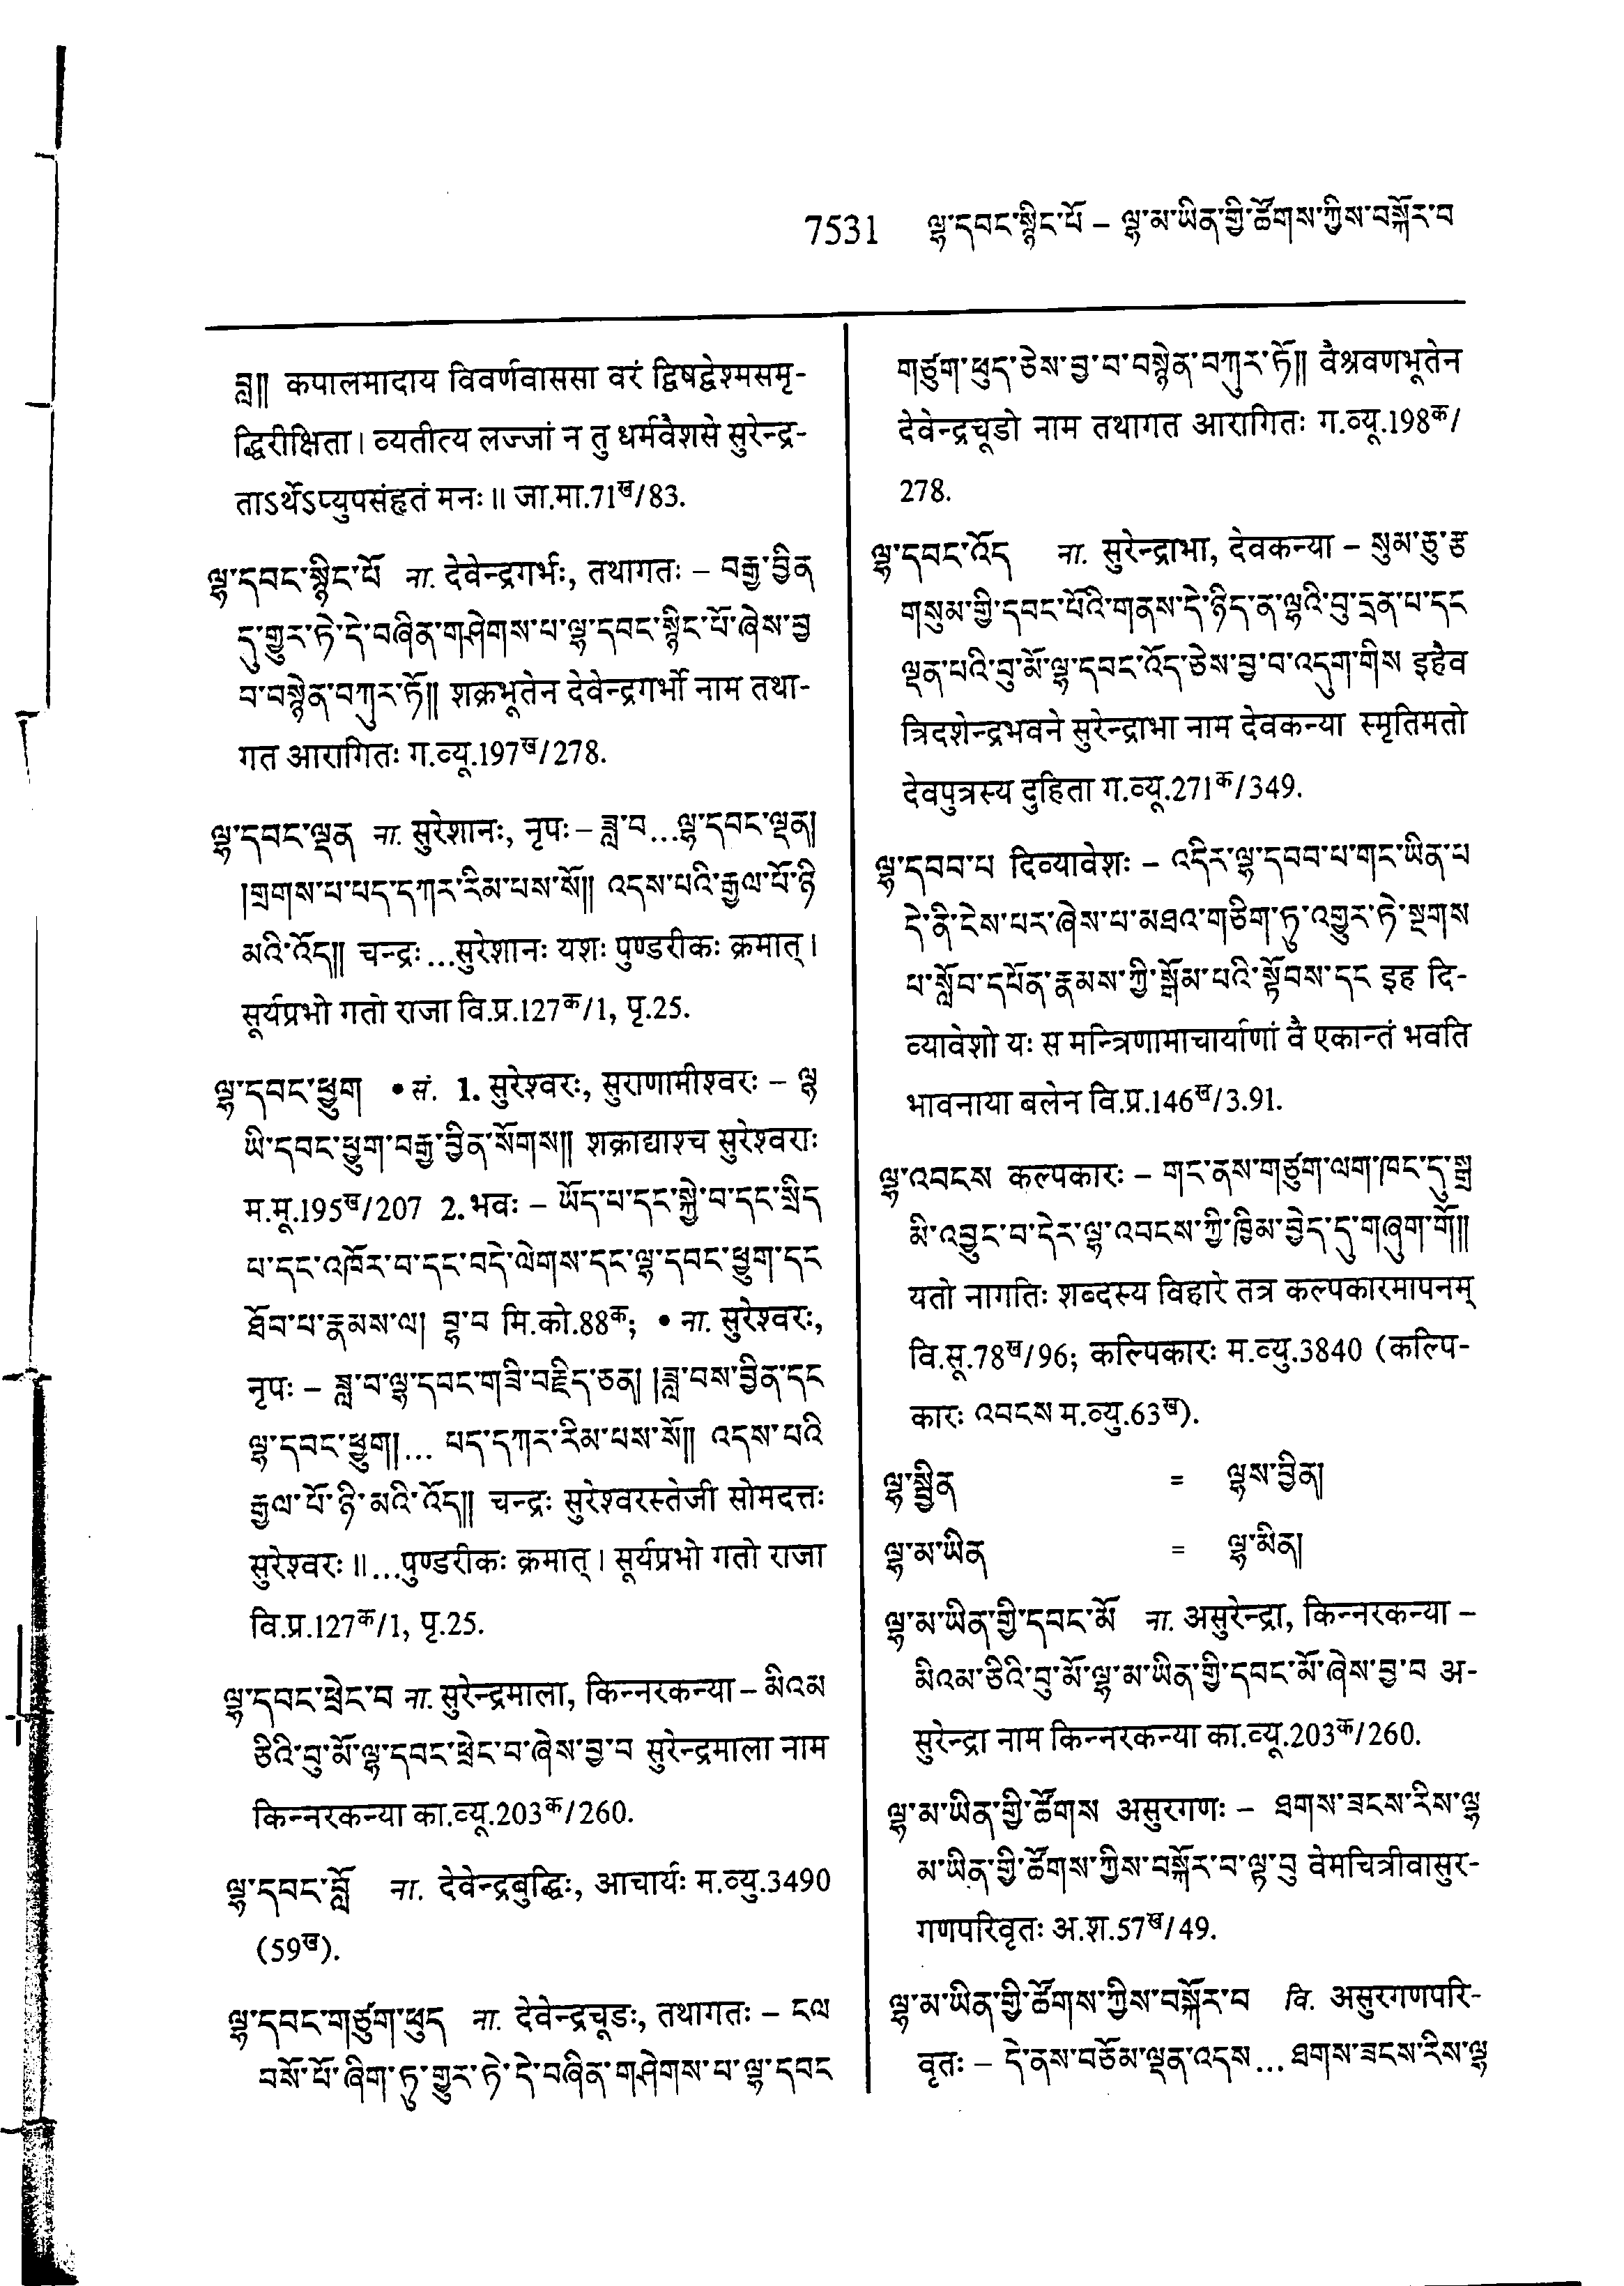 7531 ལྷ་དབང་སྙིང་པོ – ལྷ་མ་ཡིན་གྱི་ཚོགས་ཀྱིས་བསྐོར་བ
བླ༎ कपालमादाय विवर्णवाससा वरं द्विषद्वेश्मसमृ-
द्धिरीक्षिता। व्यतीत्य लज्जां न तु धर्मवैशसे सुरेन्द्र-
ताऽर्थेऽप्युपसंहृतं मनः॥ जा.मा.71ख/83.
ལྷ་དབང་སྙིང་པོ ना. देवेन्द्रगर्भः, तथागतः – བརྒྱ་བྱིན
དུ་གྱུར་ཏེ་དེ་བཞིན་གཤེགས་པ་ལྷ་དབང་སྙིང་པོ་ཞེས་བྱ
བ་བསྙེན་བཀུར་ཏོ༎ शक्रभूतेन देवेन्द्रगर्भो नाम तथा-
गत आरागितः ग.व्यू.197ख/278.
ལྷ་དབང་ལྡན ना. सुरेशानः, नृपः – ཟླ་བ...ལྷ་དབང་ལྡན།
།གྲགས་པ་པད་དཀར་རིམ་པས་སོ༎ འདས་པའི་རྒྱལ་པོ་ཉི
མའི་འོད༎ चन्द्रः...सुरेशानः यशः पुण्डरीकः क्रमात्।
सूर्यप्रभो गतो राजा वि.प्र.127क/1, पृ.25.
ལྷ་དབང་ཕྱུག • सं. 1. सुरेश्वरः, सुराणामीश्वरः – ལྷ
ཡི་དབང་ཕྱུག་བརྒྱ་བྱིན་སོགས༎ शक्राद्याश्च सुरेश्वराः
म.मू.195ख/207 2. भवः – ཡོད་པ་དང་སྐྱེ་བ་དང་སྲིད
པ་དང་འཁོར་བ་དང་བདེ་ལེགས་དང་ལྷ་དབང་ཕྱུག་དང
ཐོབ་པ་རྣམས་ལ། བྷ་བ मि.को.88क; • ना. सुरेश्वरः,
नृपः – ཟླ་བ་ལྷ་དབང་གཟི་བརྗིད་ཅན། །ཟླ་བས་བྱིན་དང
ལྷ་དབང་ཕྱུག།... པད་དཀར་རིམ་པས་སོ༎ འདས་པའི
རྒྱལ་པོ་ཉི་མའི་འོད༎ चन्द्रः सुरेश्वरस्तेजी सोमदत्तः
सुरेश्वरः॥...पुण्डरीकः क्रमात्। सूर्यप्रभो गतो राजा
वि.प्र.127क/1, पृ.25.
ལྷ་དབང་ཕྲེང་བ ना. सुरेन्द्रमाला, किन्नरकन्या – མིའམ
ཅིའི་བུ་མོ་ལྷ་དབང་ཕྲེང་བ་ཞེས་བྱ་བ सुरेन्द्रमाला नाम
किन्नरकन्या का.व्यू.203क/260.
ལྷ་དབང་བློ ना. देवेन्द्रबुद्धिः, आचार्यः म.व्यु.3490
(59ख).
ལྷ་དབང་གཙུག་ཕུད ना. देवेन्द्रचूडः, तथागतः – ངལ
བསོ་པོ་ཞིག་ཏུ་གྱུར་ཏེ་དེ་བཞིན་གཤེགས་པ་ལྷ་དབང
གཙུག་ཕུད་ཅེས་བྱ་བ་བསྙེན་བཀུར་ཏོ༎ वैश्रवणभूतेन
देवेन्द्रचूडो नाम तथागत आरागितः ग.व्यू.198क/
278.
ལྷ་དབང་འོད ना. सुरेन्द्राभा, देवकन्या – སུམ་ཅུ་རྩ
གསུམ་གྱི་དབང་པོའི་གནས་དེ་ཉིད་ན་ལྷའི་བུ་དྲན་པ་དང
ལྡན་པའི་བུ་མོ་ལྷ་དབང་འོད་ཅེས་བྱ་བ་འདུག་གིས इहैव
त्रिदशेन्द्रभवने सुरेन्द्राभा नाम देवकन्या स्मृतिमतो
देवपुत्रस्य दुहिता ग.व्यू.271क/349.
ལྷ་དབབ་པ दिव्यावेशः – འདིར་ལྷ་དབབ་པ་གང་ཡིན་པ
དེ་ནི་ངེས་པར་ཞེས་པ་མཐའ་གཅིག་ཏུ་འགྱུར་ཏེ་སྔགས
པ་སློབ་དཔོན་རྣམས་ཀྱི་སྒོམ་པའི་སྟོབས་དང इह दि-
व्यावेशो यः स मन्त्रिणामाचार्याणां वै एकान्तं भवति
भावनाया बलेन वि.प्र.146ख/3.91.
ལྷ་འབངས कल्पकारः – གང་ནས་གཙུག་ལག་ཁང་དུ་སྒྲ
མི་འབྱུང་བ་དེར་ལྷ་འབངས་ཀྱི་ཁྱིམ་བྱེད་དུ་གཞུག་གོ༎
यतो नागतिः शब्दस्य विहारे तत्र कल्पकारमापनम्
वि.सू.78ख/96; कल्पिकारः म.व्यु.3840 (कल्पि-
कारः འབངས म.व्यु.63ख).
ལྷ་སྦྱིན = ལྷས་བྱིན།
ལྷ་མ་ཡིན = ལྷ་མིན།
ལྷ་མ་ཡིན་གྱི་དབང་མོ ना. असुरेन्द्रा, किन्नरकन्या –
མིའམ་ཅིའི་བུ་མོ་ལྷ་མ་ཡིན་གྱི་དབང་མོ་ཞེས་བྱ་བ अ-
सुरेन्द्रा नाम किन्नरकन्या का.व्यू.203क/260.
ལྷ་མ་ཡིན་གྱི་ཚོགས असुरगणः – ཐགས་ཟངས་རིས་ལྷ
མ་ཡིན་གྱི་ཚོགས་ཀྱིས་བསྐོར་བ་ལྟ་བུ वेमचित्रीवासुर-
गणपरिवृतः अ.श.57ख/49.
ལྷ་མ་ཡིན་གྱི་ཚོགས་ཀྱིས་བསྐོར་བ वि. असुरगणपरि-
वृतः – དེ་ནས་བཅོམ་ལྡན་འདས... ཐགས་ཟངས་རིས་ལྷ